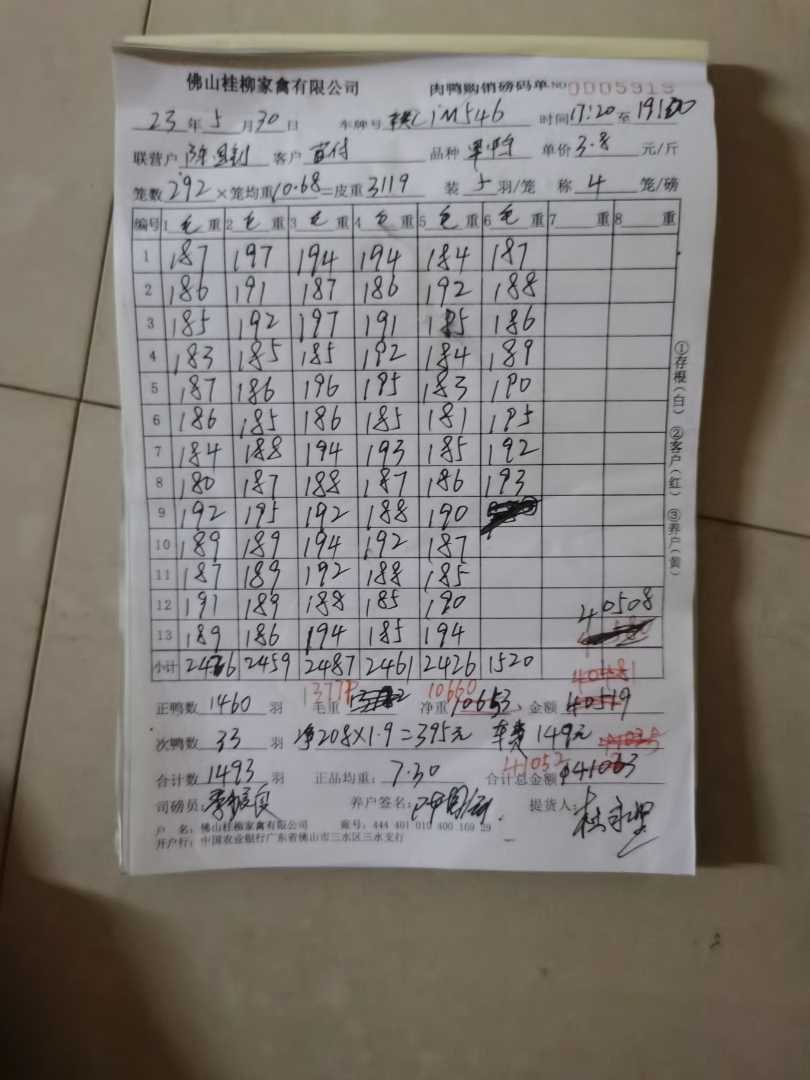 佛山桂柳家禽有限公司 肉鸭购销磅码单 NO 0005919
23 年 5 月 30 日 车牌号 1M546 时间 17:20 至 19:00
联营户 客户 苗付 品种 单价 3.8 元/斤
笼数 292 × 笼均重 10.68 = 皮重 3119 装 5 羽/笼 称 4 笼/磅
编号 1 毛 重 2 毛 重 3 毛 重 4 毛 重 5 毛 重 6 毛 重 7 重 8 重
1 187 197 194 194 184 187
2 186 191 187 186 192 188
3 185 192 197 191 185 186
4 183 185 185 192 184 189
5 187 186 196 195 183 190
6 186 185 186 185 181 195
7 184 188 194 193 185 192
8 180 187 188 187 186 193
9 192 195 192 188 190
10 189 189 194 192 187
11 187 189 192 188 185
12 191 189 188 185 190 40508
13 189 186 194 185 194
小计 2426 2459 2487 2461 2426 1520
正鸭数 1460 羽 毛重 净重 10660 10653 金额 40519
次鸭数 33 羽 净208×1.9=395元 车费 149元
合计数 1493 羽 正品均重: 7.30 合计总金额 41052 41063
司磅员: 养户签名: 提货人:
户 名: 佛山桂柳家禽有限公司 账号: 444 401 010 400 169 29
开户行: 中国农业银行广东省佛山市三水区三水支行
①存根(白) ②客户(红) ③养户(黄)